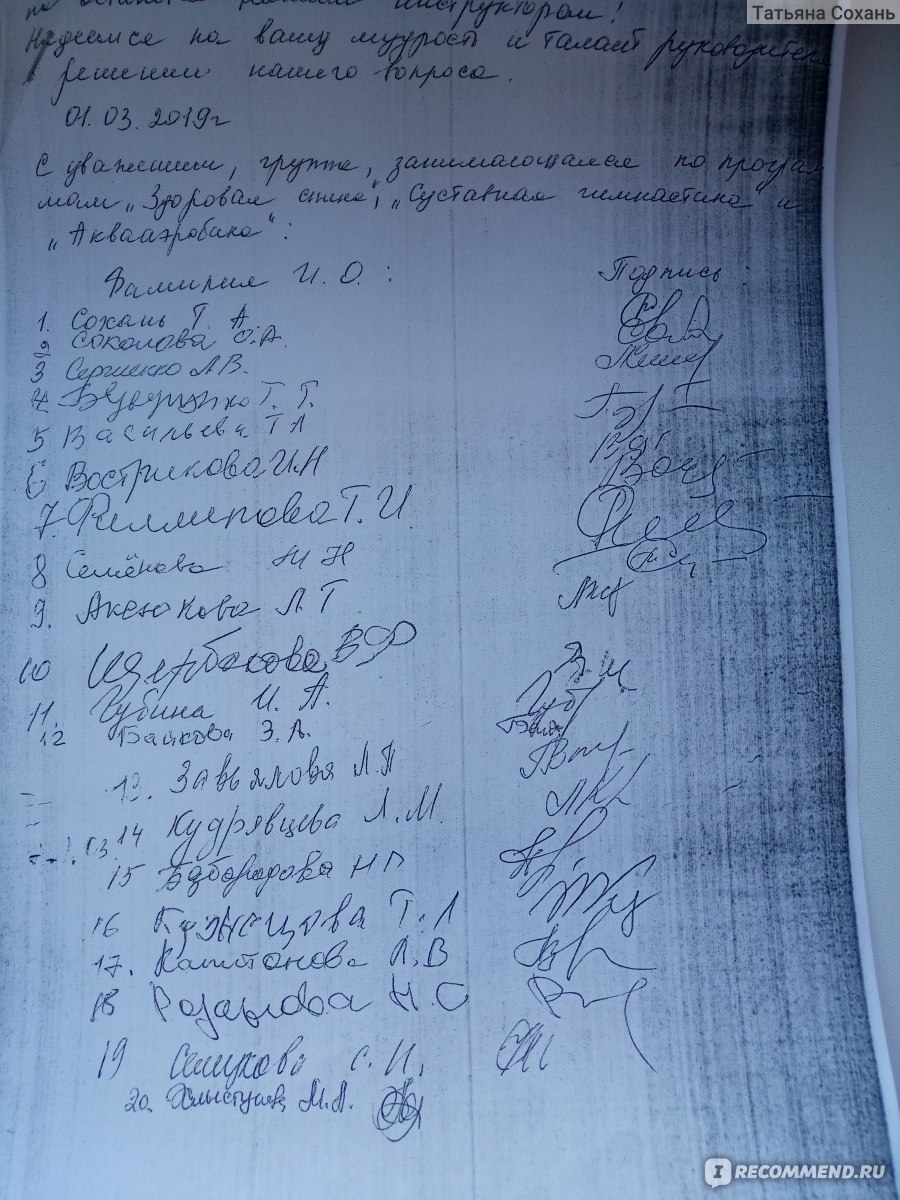 Татьяна Сохань
инструктором!
Надеемся на вашу мудрость и талант руководителя
в решении нашего вопроса.
01.03.2019г
С уважением, группа, занимающаяся по програм
мам „Здоровая спина", „Суставная гимнастика" и
„Аквааэробика":
Фамилия И. О. : Подпись :
1. Сохань Т. А
2 Соколова О.А.
3 Сергиенко Л.В.
4 Т. Г.
5 Васильева Т Л
6 Вострикова И.Н
7. Филиппова Т. И.
8 Семёнова Н Н
9. Аксюкова Л. Т
10 Щербакова В Ф
11. Губина И. А.
12 Байкова З. А.
13. Завьялова Л.П
14 Кудрявцева Л. М.
15 Н П
16 Кузнецова Т. Л
17. Капитонова Л. В
18 Н. С
19 Семукова С. И.
20. М.А.
IRECOMMEND.RU